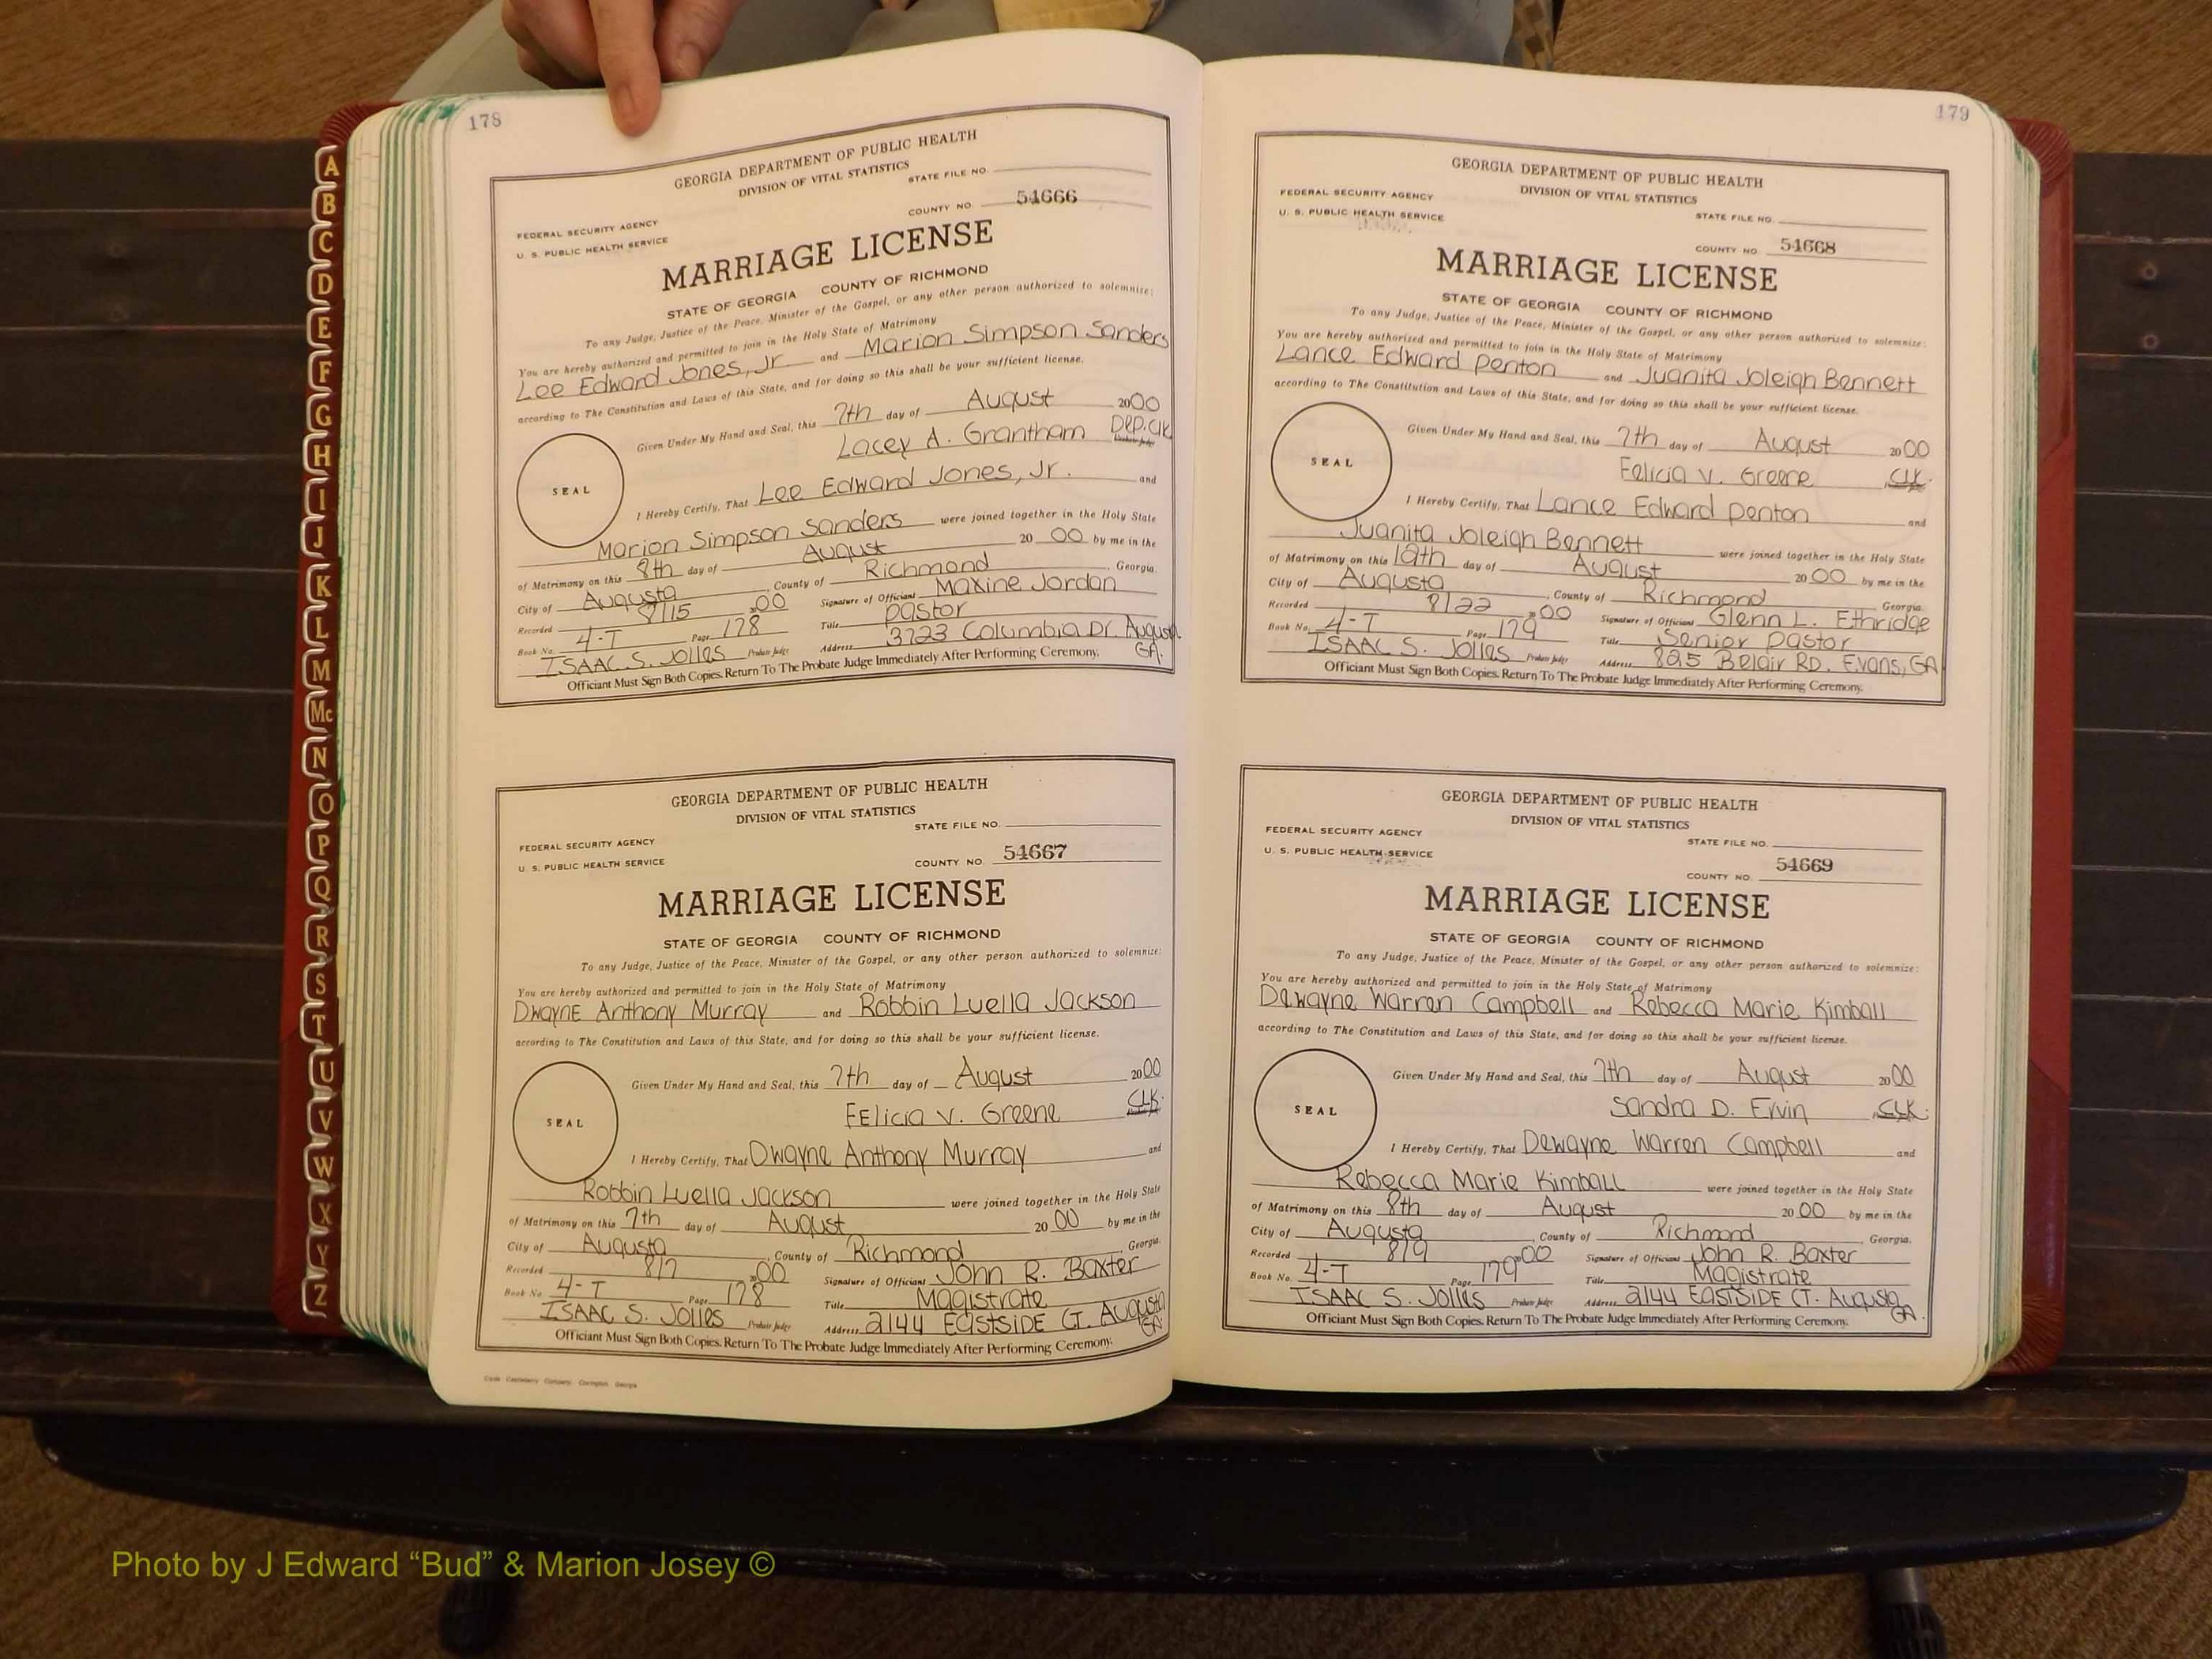 A
B
C
D
E
F
G
H
I
J
K
L
M
Mc
N
O
P
Q
R
S
T
U
V
W
X
Y
Z
178
GEORGIA DEPARTMENT OF PUBLIC HEALTH
DIVISION OF VITAL STATISTICS
STATE FILE NO.
COUNTY NO. 54666
FEDERAL SECURITY AGENCY
U. S. PUBLIC HEALTH SERVICE
MARRIAGE LICENSE
STATE OF GEORGIA COUNTY OF RICHMOND
To any Judge, Justice of the Peace, Minister of the Gospel, or any other person authorized to solemnize:
You are hereby authorized and permitted to join in the Holy State of Matrimony
Lee Edward Jones, Jr and Marion Simpson Sanders
according to The Constitution and Laws of this State, and for doing so this shall be your sufficient license.
Given Under My Hand and Seal, this 7th day of August 2000
Lacey A. Grantham Dep. Clk
SEAL
I Hereby Certify, That Lee Edward Jones, Jr. and
Marion Simpson Sanders were joined together in the Holy State
of Matrimony on this 8th day of August 20 00 by me in the
City of Augusta, County of Richmond, Georgia.
Recorded 8/15 2000 Signature of Officiant Maxine Jordan
Book No. 4-T Page 178 Title Pastor
ISAAC S. Jolles Probate Judge Address 3723 Columbia Dr. Augusta GA.
Officiant Must Sign Both Copies. Return To The Probate Judge Immediately After Performing Ceremony.
GEORGIA DEPARTMENT OF PUBLIC HEALTH
DIVISION OF VITAL STATISTICS
STATE FILE NO.
FEDERAL SECURITY AGENCY
U. S. PUBLIC HEALTH SERVICE
COUNTY NO. 54667
MARRIAGE LICENSE
STATE OF GEORGIA COUNTY OF RICHMOND
To any Judge, Justice of the Peace, Minister of the Gospel, or any other person authorized to solemnize:
You are hereby authorized and permitted to join in the Holy State of Matrimony
DwaynE Anthony Murray and Robbin Luella Jackson
according to The Constitution and Laws of this State, and for doing so this shall be your sufficient license.
Given Under My Hand and Seal, this 7th day of August 2000
FElicia V. Greene CLK.
SEAL
I Hereby Certify, That Dwayne Anthony Murray and
Robbin Luella Jackson were joined together in the Holy State
of Matrimony on this 7th day of August 20 00 by me in the
City of Augusta, County of Richmond, Georgia.
Recorded 8/7 2000 Signature of Officiant John R. Baxter
Book No 4-T Page 178 Title Magistrate
ISAAC S. Jolles Probate Judge Address 2144 EastSIDE CT. Augusta GA.
Officiant Must Sign Both Copies. Return To The Probate Judge Immediately After Performing Ceremony.
179
GEORGIA DEPARTMENT OF PUBLIC HEALTH
DIVISION OF VITAL STATISTICS
FEDERAL SECURITY AGENCY
U. S. PUBLIC HEALTH SERVICE
STATE FILE NO.
COUNTY NO 54668
MARRIAGE LICENSE
STATE OF GEORGIA COUNTY OF RICHMOND
To any Judge, Justice of the Peace, Minister of the Gospel, or any other person authorized to solemnize:
You are hereby authorized and permitted to join in the Holy State of Matrimony
Lance Edward Penton and Juanita Joleigh Bennett
according to The Constitution and Laws of this State, and for doing so this shall be your sufficient license.
Given Under My Hand and Seal, this 7th day of August 2000
Felicia V. Greene CLK.
SEAL
I Hereby Certify, That Lance Edward Penton and
Juanita Joleigh Bennett were joined together in the Holy State
of Matrimony on this 19th day of August 20 00 by me in the
City of Augusta, County of Richmond Georgia.
Recorded 8/22 2000 Signature of Officiant Glenn L. Ethridge
Book No. 4-T Page 179 Title Senior Pastor
ISAAC S. Jolles Probate Judge Address 825 Belair RD. Evans, GA
Officiant Must Sign Both Copies. Return To The Probate Judge Immediately After Performing Ceremony.
GEORGIA DEPARTMENT OF PUBLIC HEALTH
DIVISION OF VITAL STATISTICS
FEDERAL SECURITY AGENCY
U. S. PUBLIC HEALTH SERVICE
STATE FILE NO.
COUNTY NO. 54669
MARRIAGE LICENSE
STATE OF GEORGIA COUNTY OF RICHMOND
To any Judge, Justice of the Peace, Minister of the Gospel, or any other person authorized to solemnize:
You are hereby authorized and permitted to join in the Holy State of Matrimony
Dewayne Warren Campbell and Rebecca Marie Kimball
according to The Constitution and Laws of this State, and for doing so this shall be your sufficient license.
Given Under My Hand and Seal, this 7th day of August 2000
Sandra D. Ervin CLK.
SEAL
I Hereby Certify, That Dewayne Warren Campbell and
Rebecca Marie Kimball were joined together in the Holy State
of Matrimony on this 8th day of August 20 00 by me in the
City of Augusta, County of Richmond, Georgia.
Recorded 8/9 2000 Signature of Officiant John R. Baxter
Book No. 4-T Page 179 Title Magistrate
ISAAC S. Jolles Probate Judge Address 2144 EASTSIDE CT. Augusta GA.
Officiant Must Sign Both Copies. Return To The Probate Judge Immediately After Performing Ceremony.
Photo by J Edward “Bud” & Marion Josey ©